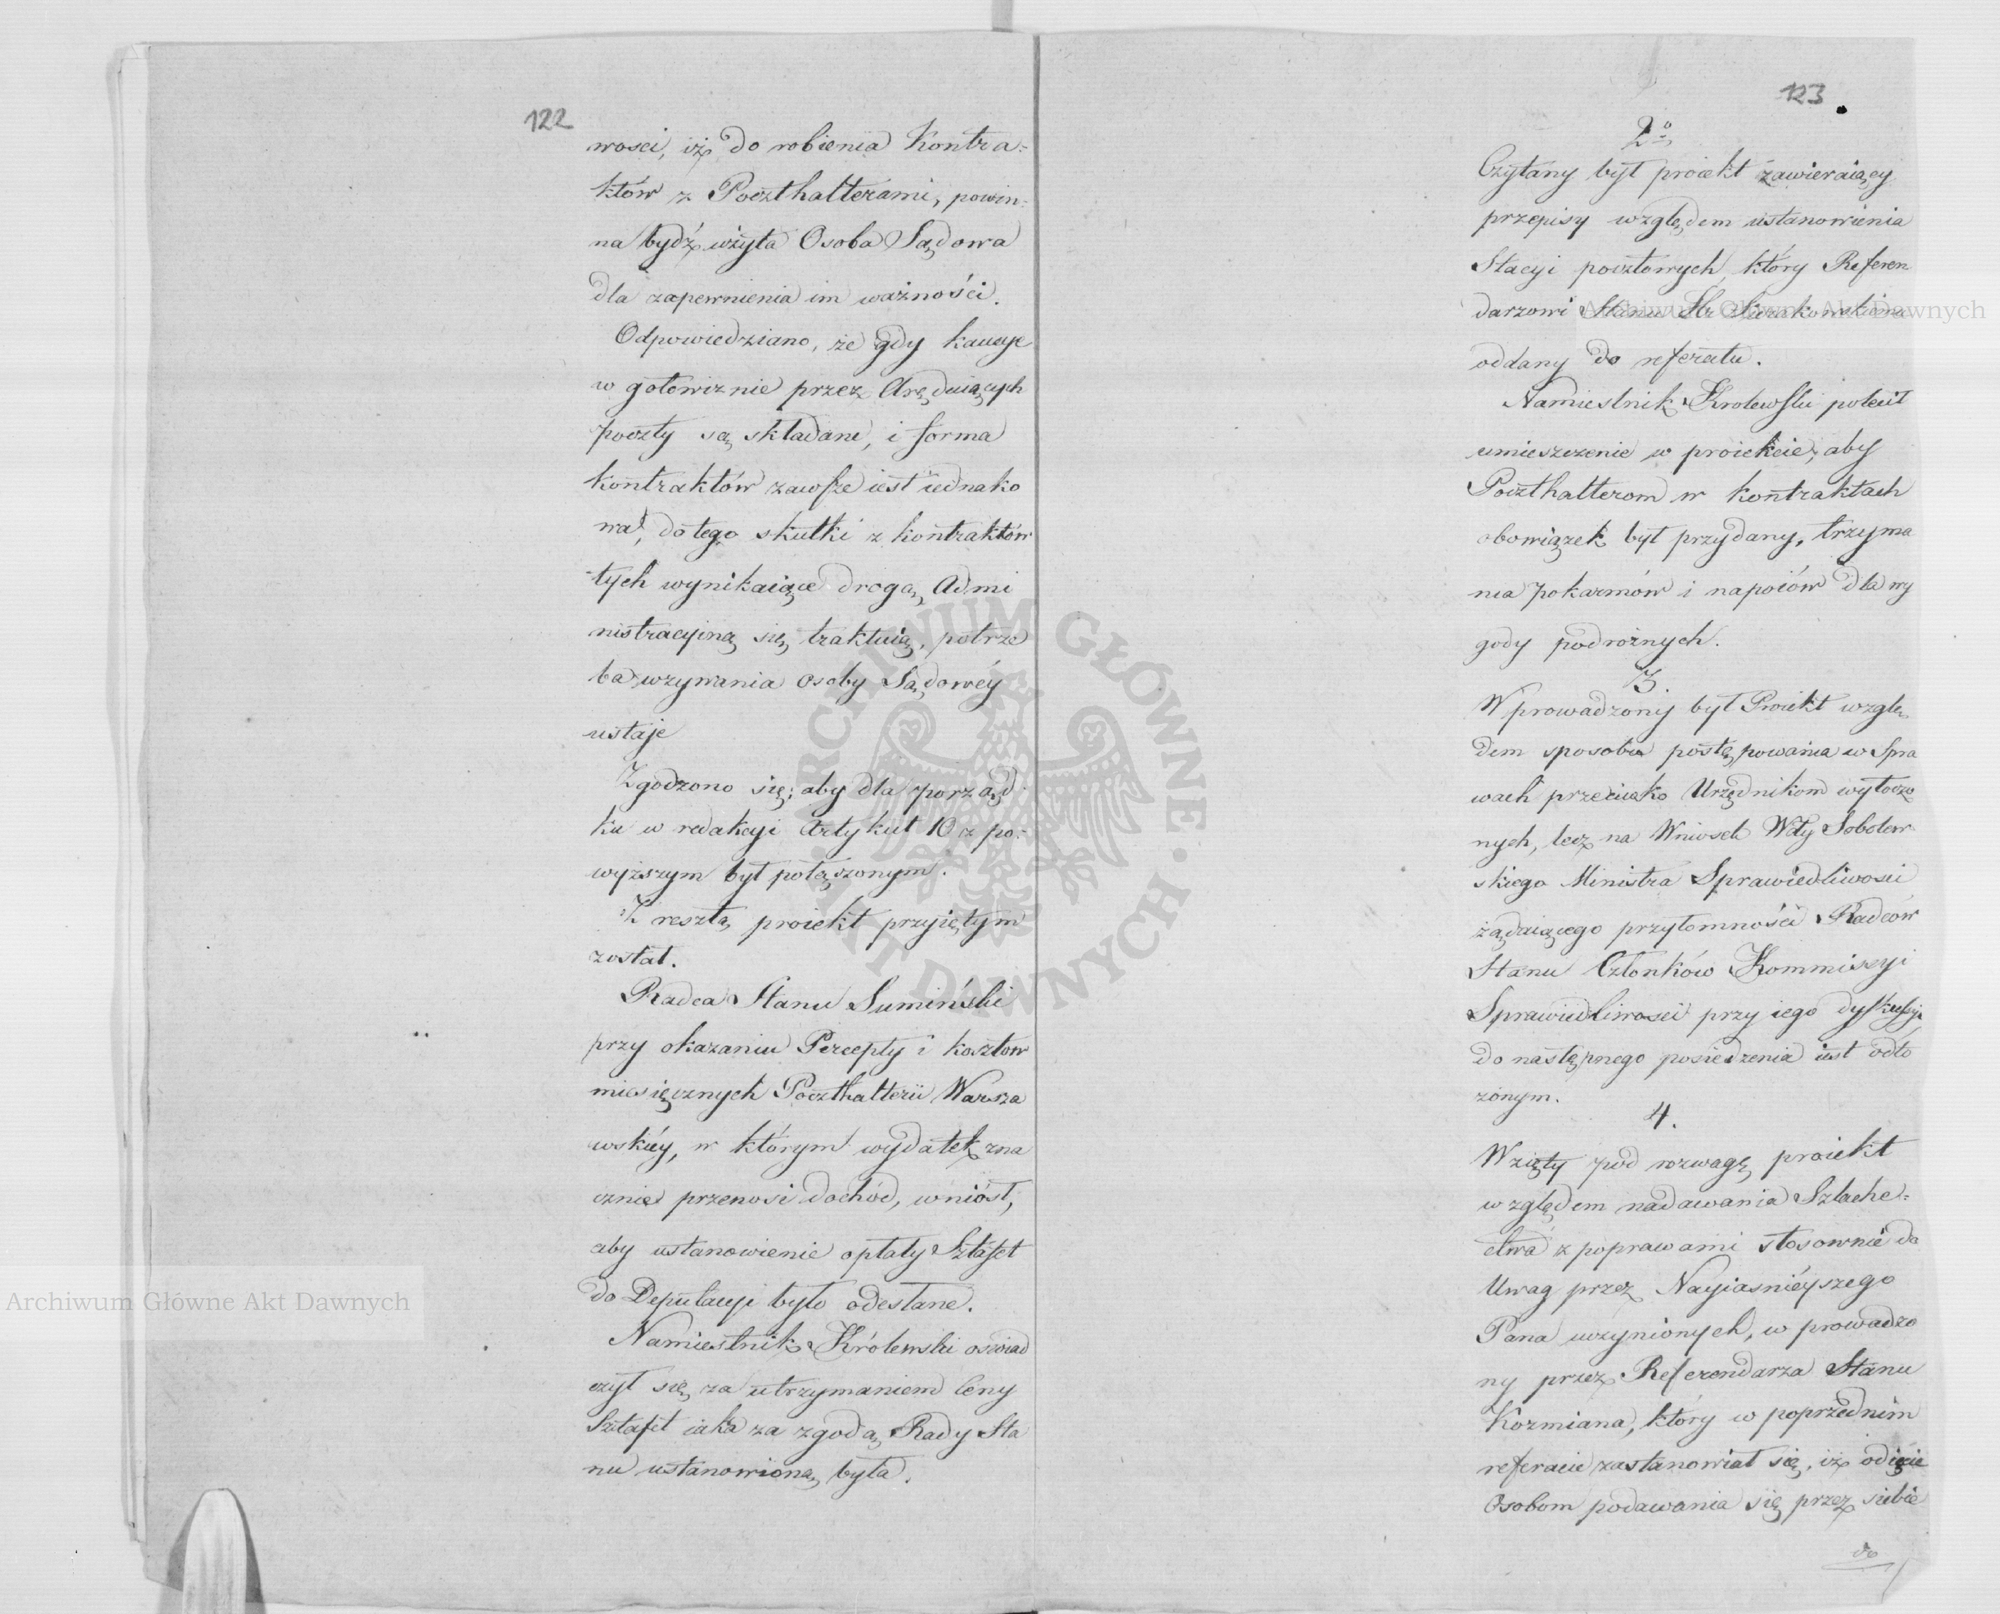 122
wosci, iż do robienia Kontra=
któw z Poczthalterami, powin=
na bydź użyta Osoba Sądowa
dla zapewnienia im ważności.
Odpowiedziano, że gdy kaucye
w gotowiznie przez Aręduiących
poczty są składane, i forma
kontraktów zawsze iest iednako
wa, do tego skutki z kontraktów
tych wynikaiące drogą Admi
nistracyiną się traktuią, potrze
ba wzywania osoby Sądowéy
ustaje
Zgodzono się; aby dla porząd
ku w redakcyi Artykuł 10 z po=
wyższym był połączonym.
Z resztą proiekt przyiętym
został.
Radca Stanu Sumiński
przy okazaniu Percepty i kosztow
miesięcznych Poczthalterii Warsza
wskiéy, w którym wydatek zna
cznie przenosi dochód, wniósł,
aby ustanowienie opłaty Sztafet
do Deputacyi było odesłane.
Namiestnik Królewski oświad
czył się za utrzymaniem Ceny
Sztafet iaka za zgodą Rady Sta
nu ustanowioną była.
123
2o
Czytany był proiekt zawieraiący
przepisy względem ustanowienia
Stacyi pocztowych, który Referen
darzowi Stanu Hr
oddany do referatu.
Namiestnik Krolewski polecił
umieszczenie w proiekcie, aby
Poczthalterom w kontraktach
obowiązek był przydany, trzyma
nia pokarmów i napoiów dla wy
gody podrożnych.
3.
Wprowadzony był Proiekt wzglę
dem sposobu postępowania w Spra
wach przeciwko Urzędnikom wytoczo
nych, lecz na Wniosek Wdy Sobolew
skiego Ministra Sprawiedliwosci
żądaiącego przytomności Radców
Stanu Członków Kommissyi
Sprawiedliwosci przy iego dyskussyi
do następnego posiedzenia iest odło
żonym.
4.
Wzięty pod rozwagę proiekt
względem nadawania Szlache=
ctwa z poprawami stosownie do
Uwag przez Nayiaśniéyszego
Pana uczynionych, wprowadzo
ny przez Referendarza Stanu
Kozmiana, który w poprzednim
referacie zastanowiał się, iż odięcie
Osobom podawania się przez siebie
do
Archiwum Główne Akt Dawnych
Archiwum Główne Akt Dawnych
ARCHIWUM GŁÓWNE · AKT DAWNYCH ·